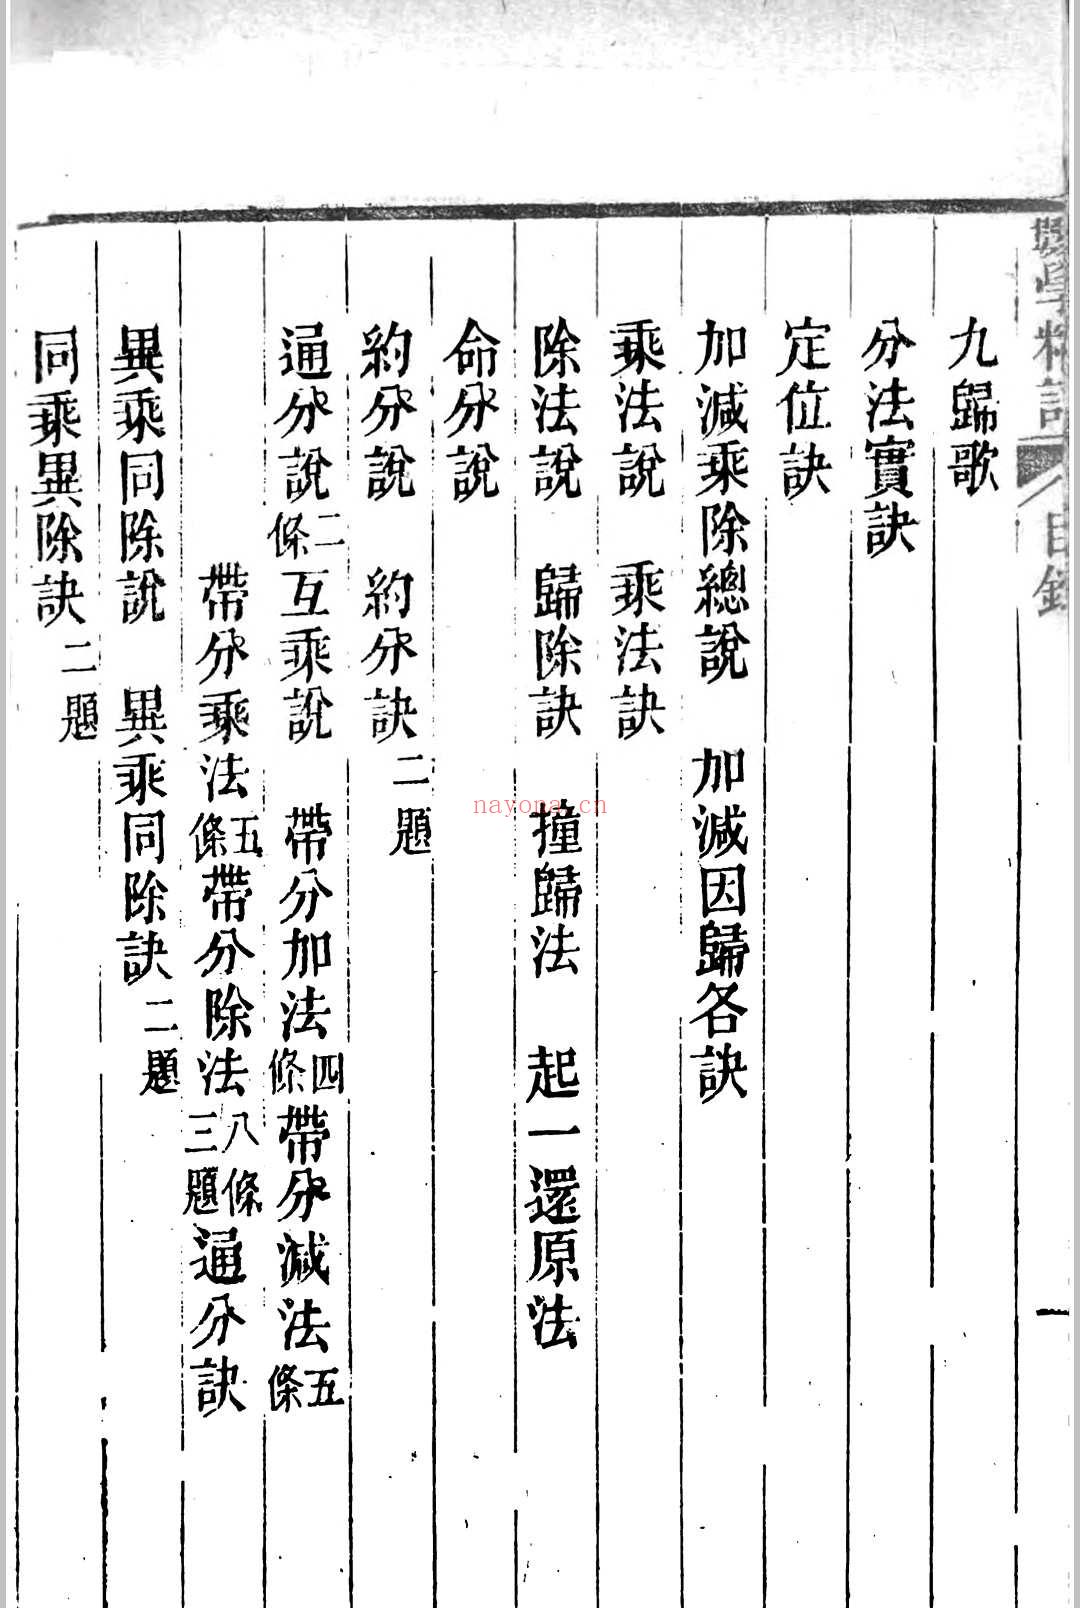 九歸歌
分法實訣
定位訣
加減乘除總說　加減因歸各訣
乘法說　乘法訣
除法說　歸除訣　撞歸法　起一還原法
命分說
約分說　約分訣二題
通分說二條互乘說　帶分加法四條帶分減法五條
帶分乘法五條帶分除法八條三題通分訣
異乘同除說　異乘同除訣二題
同乘異除訣二題
學
目錄
一
nayona.cn